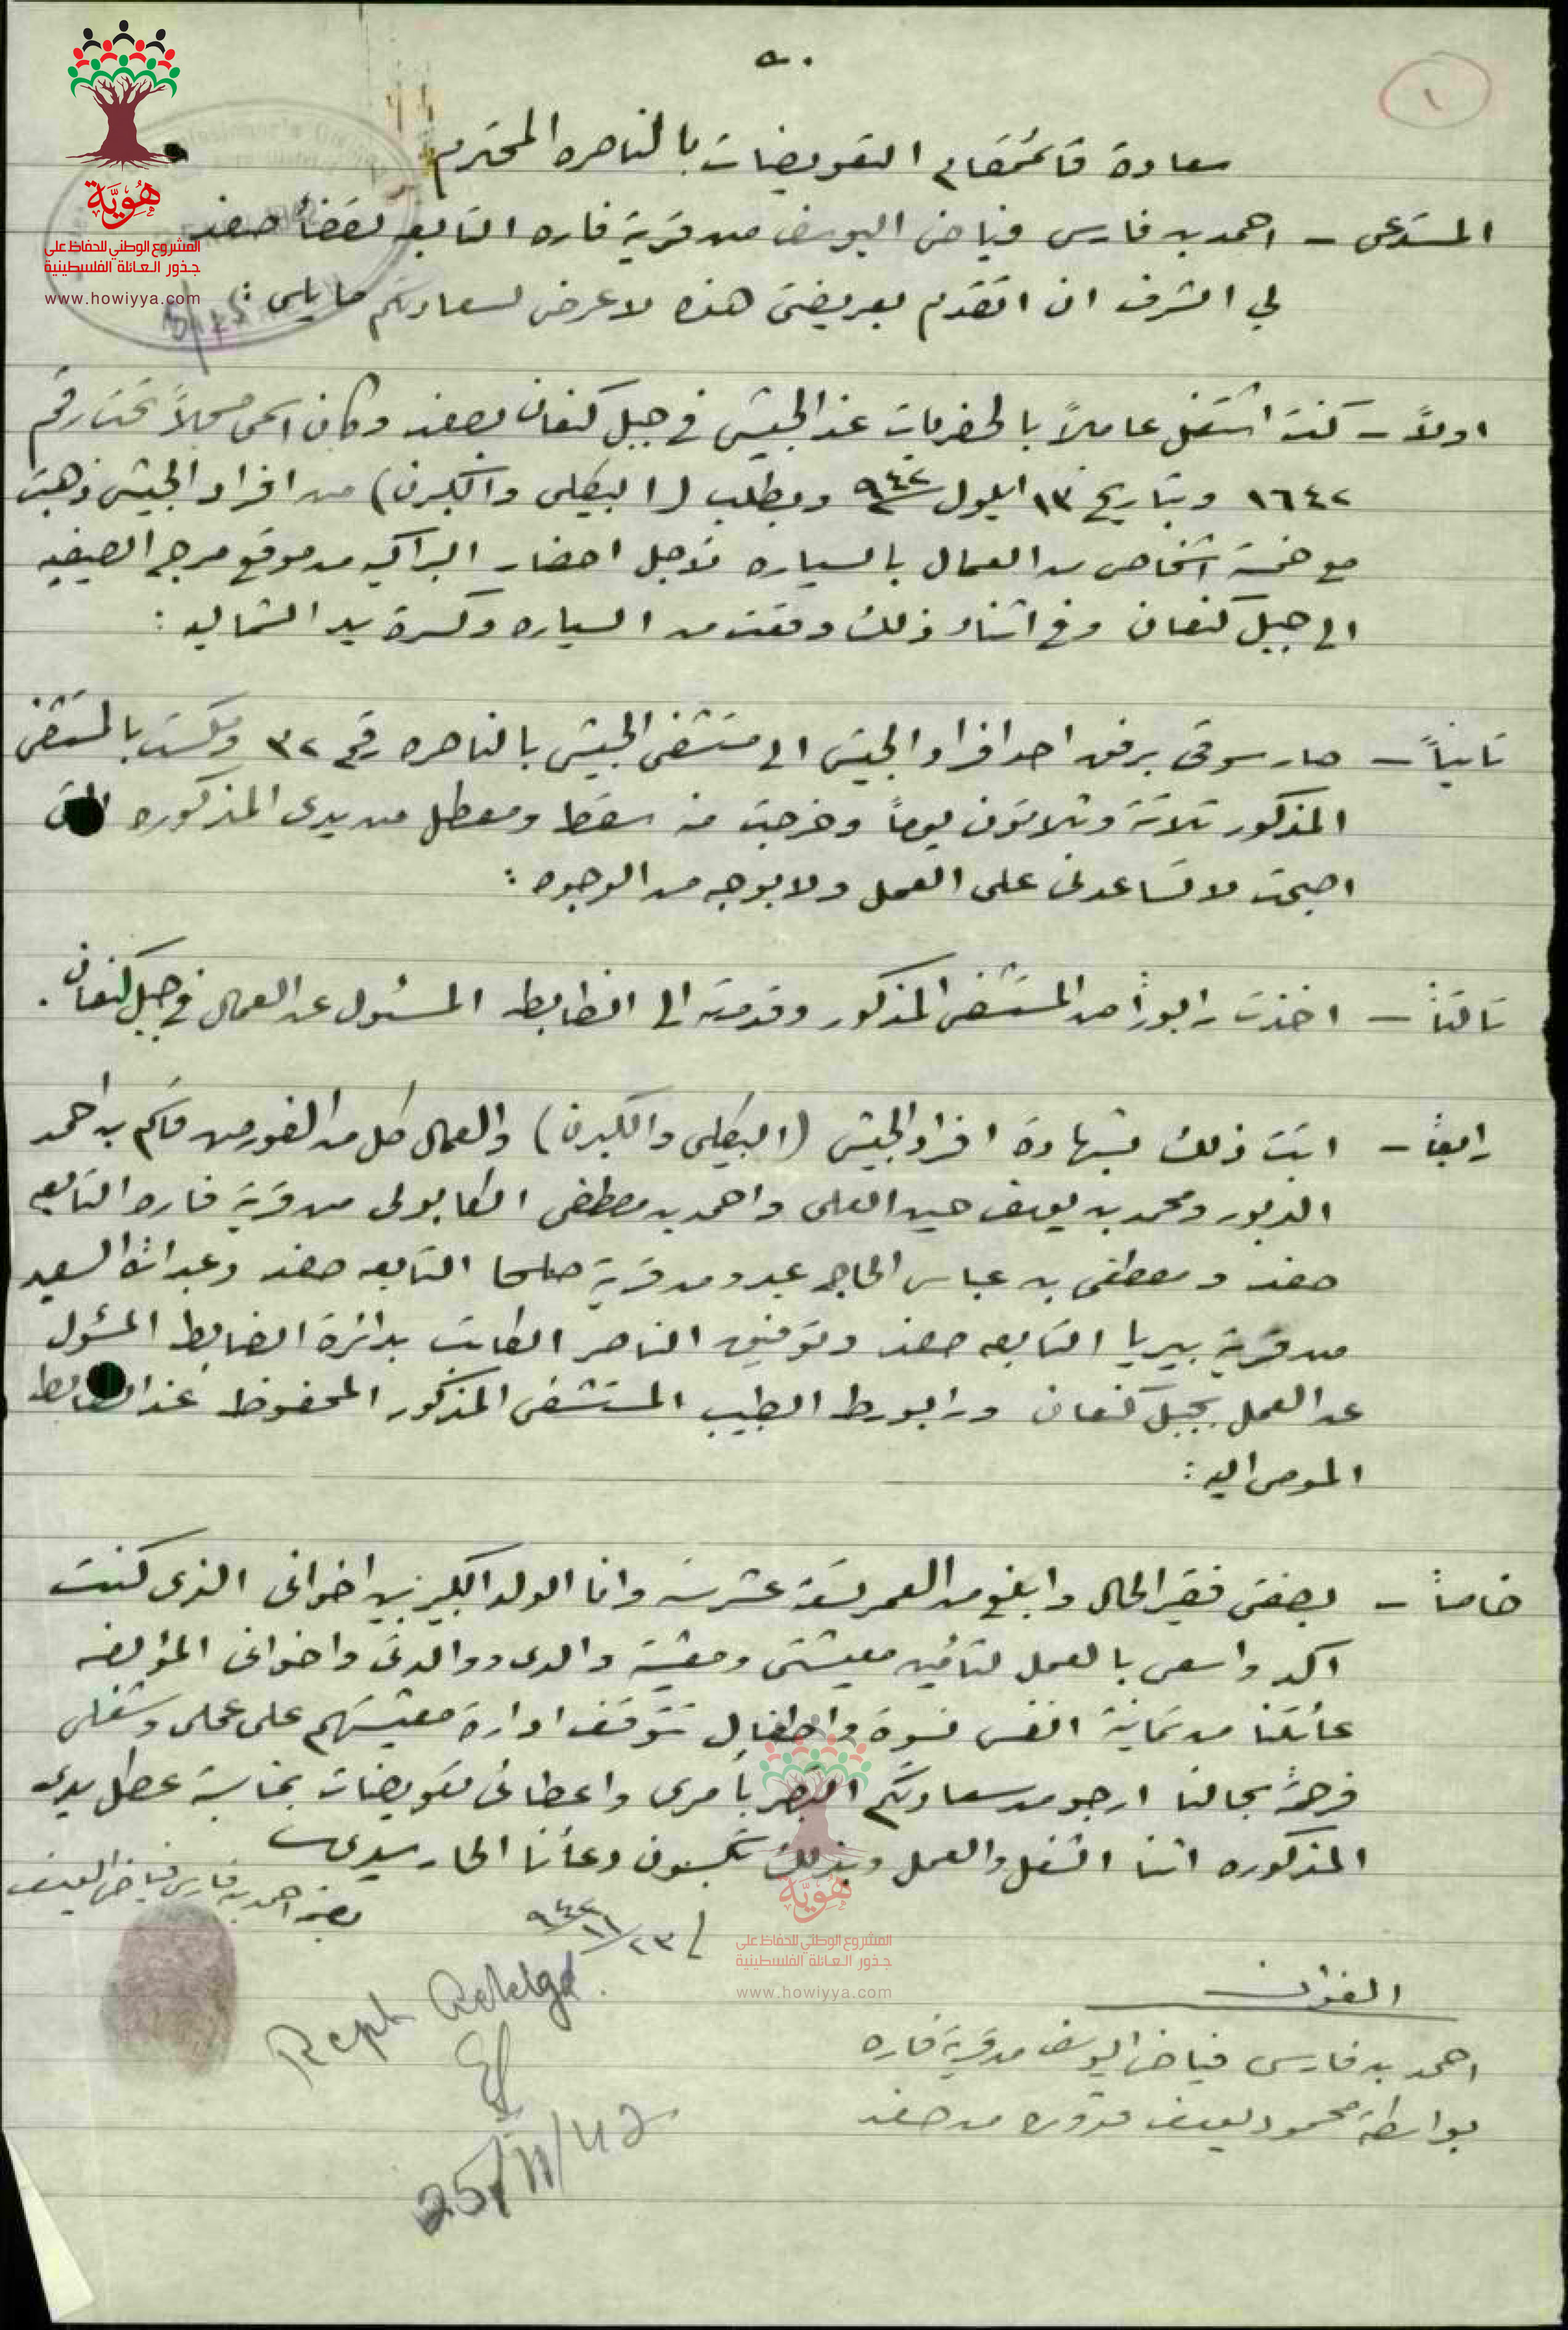 ٥٠
١
سعادة قائمقام التعويضات بالناصره المحترم
المستدعي - احمد بن فارس فياض اليوسف من قرية فاره التابعه لقضأ صفد
لي الشرف ان اتقدم بعريضتي هذه لاعرض لسعادتكم ما يلي :
اولاً - كنت اشتغل عاملاً بالحفريات عند الجيش في جبل كنعان بصفد وكان اسمي مسجلاً تحت رقم
١٦٤٢ وبتاريخ ١٣ ايلول ٩٤٢ وبطلب ( البيكلي والكبرن ) من افراد الجيش ذهبت
مع خمسة اشخاص من العمال بالسياره لاجل احضار البراكيه من موقع مرج الصيفيه
الى جبل كنعان وفي اثناء ذلك وقعت من السياره وكسرة يد الشماليه :
ثانياً - صار سوقي برفق احد افراد الجيش الى مستشفى الجيش بالناصره رقم ٣٢ ومكست بالمستشفى
المذكور ثلاثة وثلاثون يوماً وخرجت منه سقط ومعطل من يدي المذكوره التي
اصبحت لا تساعدني على العمل ولا بوجه من الوجوه :
ثالثاً - اخذت رابوراً من المستشفى المذكور وقدمته الى الظابط المسئول عن العمال في جبل كنعان .
رابعاً - اثبت ذلك بشهادة افراد الجيش ( البيكلي والكبرن ) والعمال كل من قاسم بن احمد
ومحمد بن يوسف حسين العلي واحمد بن مصطفى الكابولي من قرية فاره التابعه
صفد ومصطفى بن عباس الحاج عبدو من قرية صلحا التابعه صفد وعبد الله السعيد
من قرية بيريا التابعه صفد وتوفيق الناصر الكاتب بدائرة الضابط المسئول
عن العمل بجبل كنعان ورابورط الطبيب المستشفى المذكور المحفوظ عند الضابط
الموصى اليه :
خامساً - بصفتي فقير الحال وابلغ من العمر تسعة عشر سنه وانا الولد الكبير بين اخواني الذي كنت
اكد واسعى بالعمل لتأمين معيشتي ومعيشة والدي ووالدتي واخواني المؤلفه
عائلتنا من ثمانية انفس نسوة واطفال تتوقف ادارة معيشتهم على عملي وشغلي
فرحمةً بحالنا ارجو من سعادتكم التبصر بأمري واعطائي تعويضات بمناسبة عطل يدي
المذكوره اثنا الشغل والعمل وبذلك تكسبون دعأنا الحار سيدي
بصمة احمد بن فارس فياض اليوسف
٢٣/١١/٩٤٢
العنوان
احمد بن فارس فياض اليوسف من قرية فاره
بواسطة محمود يوسف قدوره من صفد
25/11/42
هُويّة
المشروع الوطني للحفاظ على
جذور العائلة الفلسطينية
www.howiyya.com
هُويّة
المشروع الوطني للحفاظ على
جذور العائلة الفلسطينية
www.howiyya.com